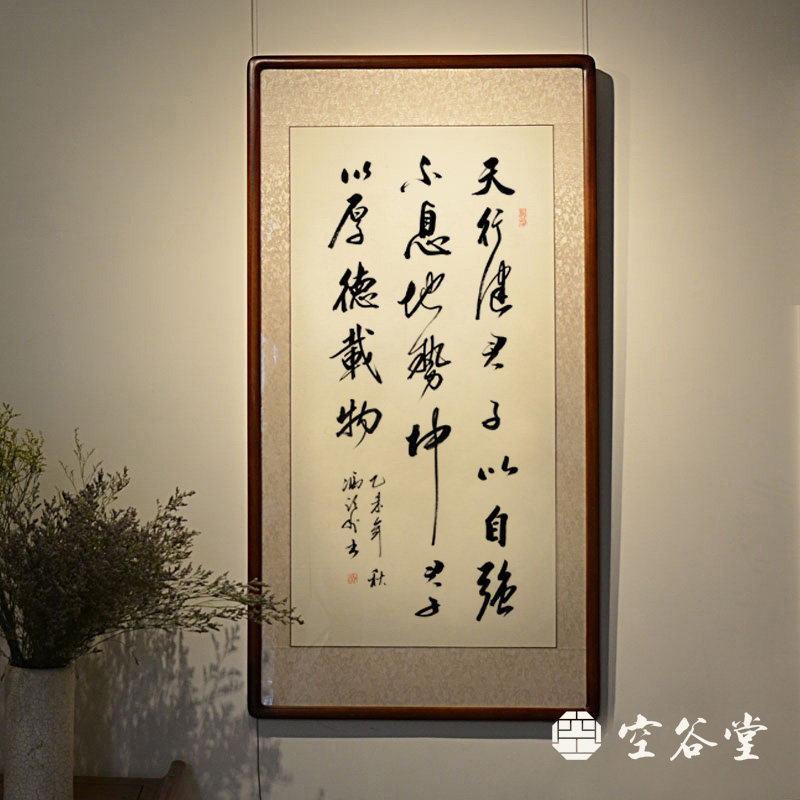 天行健君子以自強
不息地勢坤君子
以厚德載物
乙未年秋
空谷堂